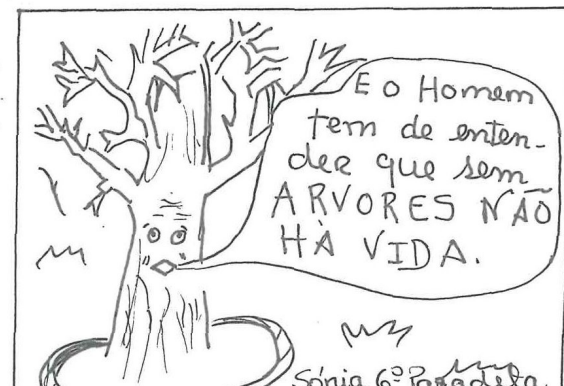 E O Homem
tem de enten-
der que sem
ARVORES NÃO
HÀ VIDA.
Sónia 6º